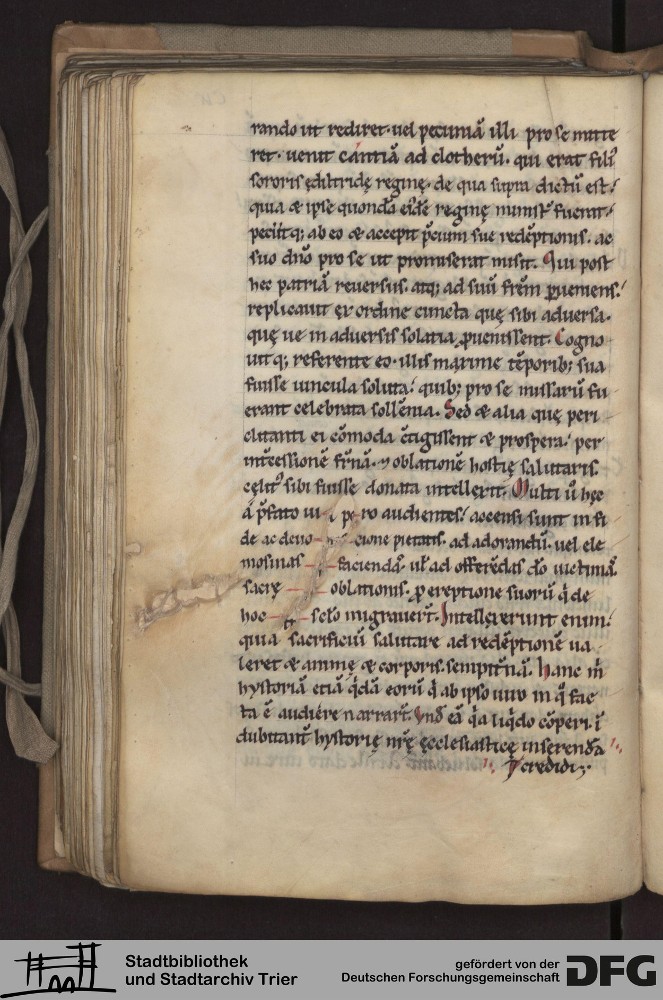 rando ut rediret· uel pecuniā illi pro se mitte
ret· uenit cantiā ad clotherū· qui erat fili᷒
sororis ędiltridę reginę· de qua supra dictū est·́
quia & ipse quondā eidē reginę minist̄ fuerat·́
petiitq;́ ab eo & accepit p̄cium sue redēptionis· ac
suo dn̄o pro se ut promiserat misit. Qui post
hec patriā reuersus· atq; ad suū frēm ꝑueniens·́
replicauit ex ordine cuncta quę sibi aduersa·
quę ue in aduersis solatia ꝓuenissent. Cogno
uitq; referente eo· illis maxime tēporib; sua
fuisse uincula soluta·́ quib; pro se missarū fu
erant celebrata sollēnia. Sed & alia quę peri
clitanti ei cōmoda c̄tigissent & prospera·́ per
int̄cessionē fr̄nā· ⁊ oblationē hostię salutaris·
cęlit᷒ sibi fuisse donata intellexit. Multi ū hęc
a p̄fato ui ro audientes·́ accensi sunt in fi
de ac deuo cione pietatis· ad adorandū· uel ele
mosinas faciendas· ul̄ ad offerēdas dō uictimā
sacrę oblationis· ꝓ ereptione suorū q̄ de
hoc sc̄lo migrauer̄t. Intellexerunt enim·́
quia sacrificiū salutare ad redēptionē ua
leret & animę & corporis sempit̄nā. Hanc m̄
hystoriā etiā q̄dā eorū q̄ ab ipso uiro in q̄ fac
ta ē audiere narrar̄t. Vnd̄ eā q̄a liq̄do cōperi· ī
dubitant̄ hystorię nr̄ę ęcclesiasticę inserendā
credidi;
Stadtbibliothek
und Stadtarchiv Trier
gefördert von der
Deutschen Forschungsgemeinschaft
DFG